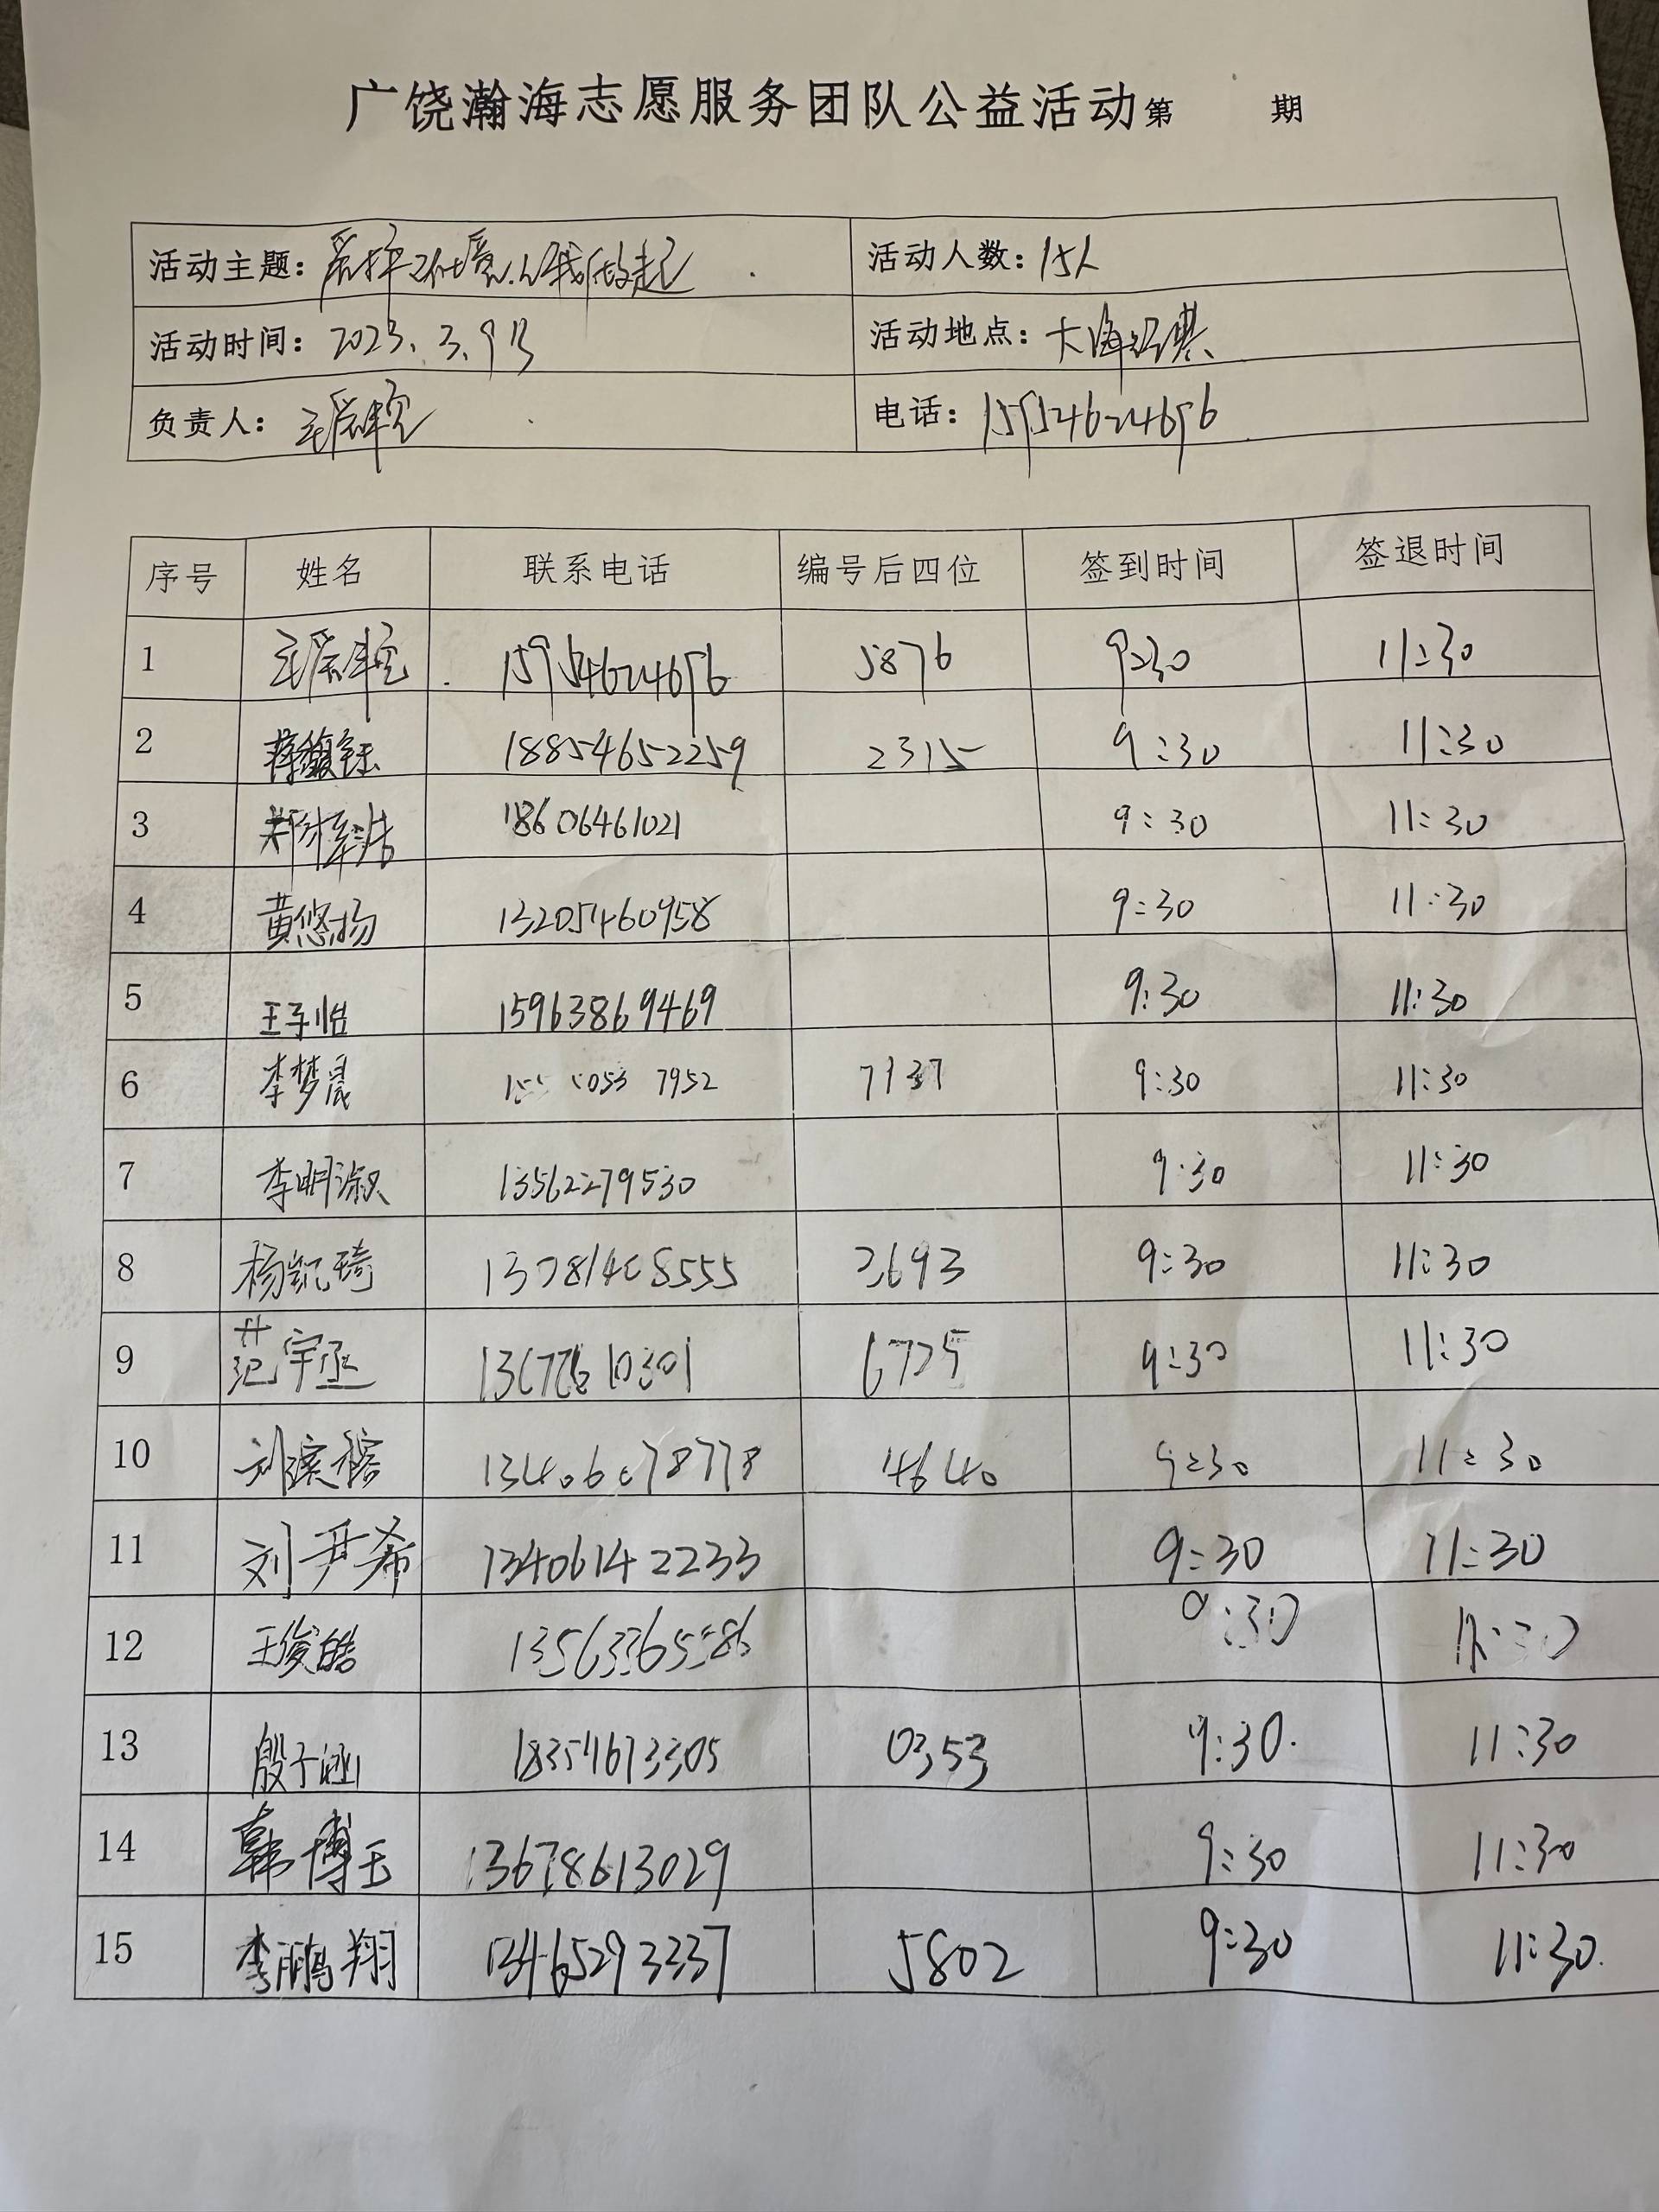 广饶瀚海志愿服务团队公益活动第 期
活动主题：爱护环境从我做起 活动人数：15人
活动时间：2023.3.9号 活动地点：大海经典
负责人： 电话：15954624696
序号 姓名 联系电话 编号后四位 签到时间 签退时间
1 15954624696 5876 9:30 11:30
2 蒋馥钰 18854652259 2315 9:30 11:30
3 郑梓浩 18606461021 9:30 11:30
4 黄悠扬 13205460958 9:30 11:30
5 王子怡 15963869469 9:30 11:30
6 李梦晨 7952 7137 9:30 11:30
7 李明淑 13562279530 9:30 11:30
8 杨凯琦 2693 9:30 11:30
9 范宇丞 9:30 11:30
10 4640 9:30 11:30
11 刘尹希 13406142233 9:30 11:30
12 王俊皓 13563365586 9:30 11:30
13 殷子涵 18354673305 0353 9:30. 11:30
14 韩博玉 13678613029 9:30 11:30
15 李鹏翔 13465293337 5802 9:30 11:30.